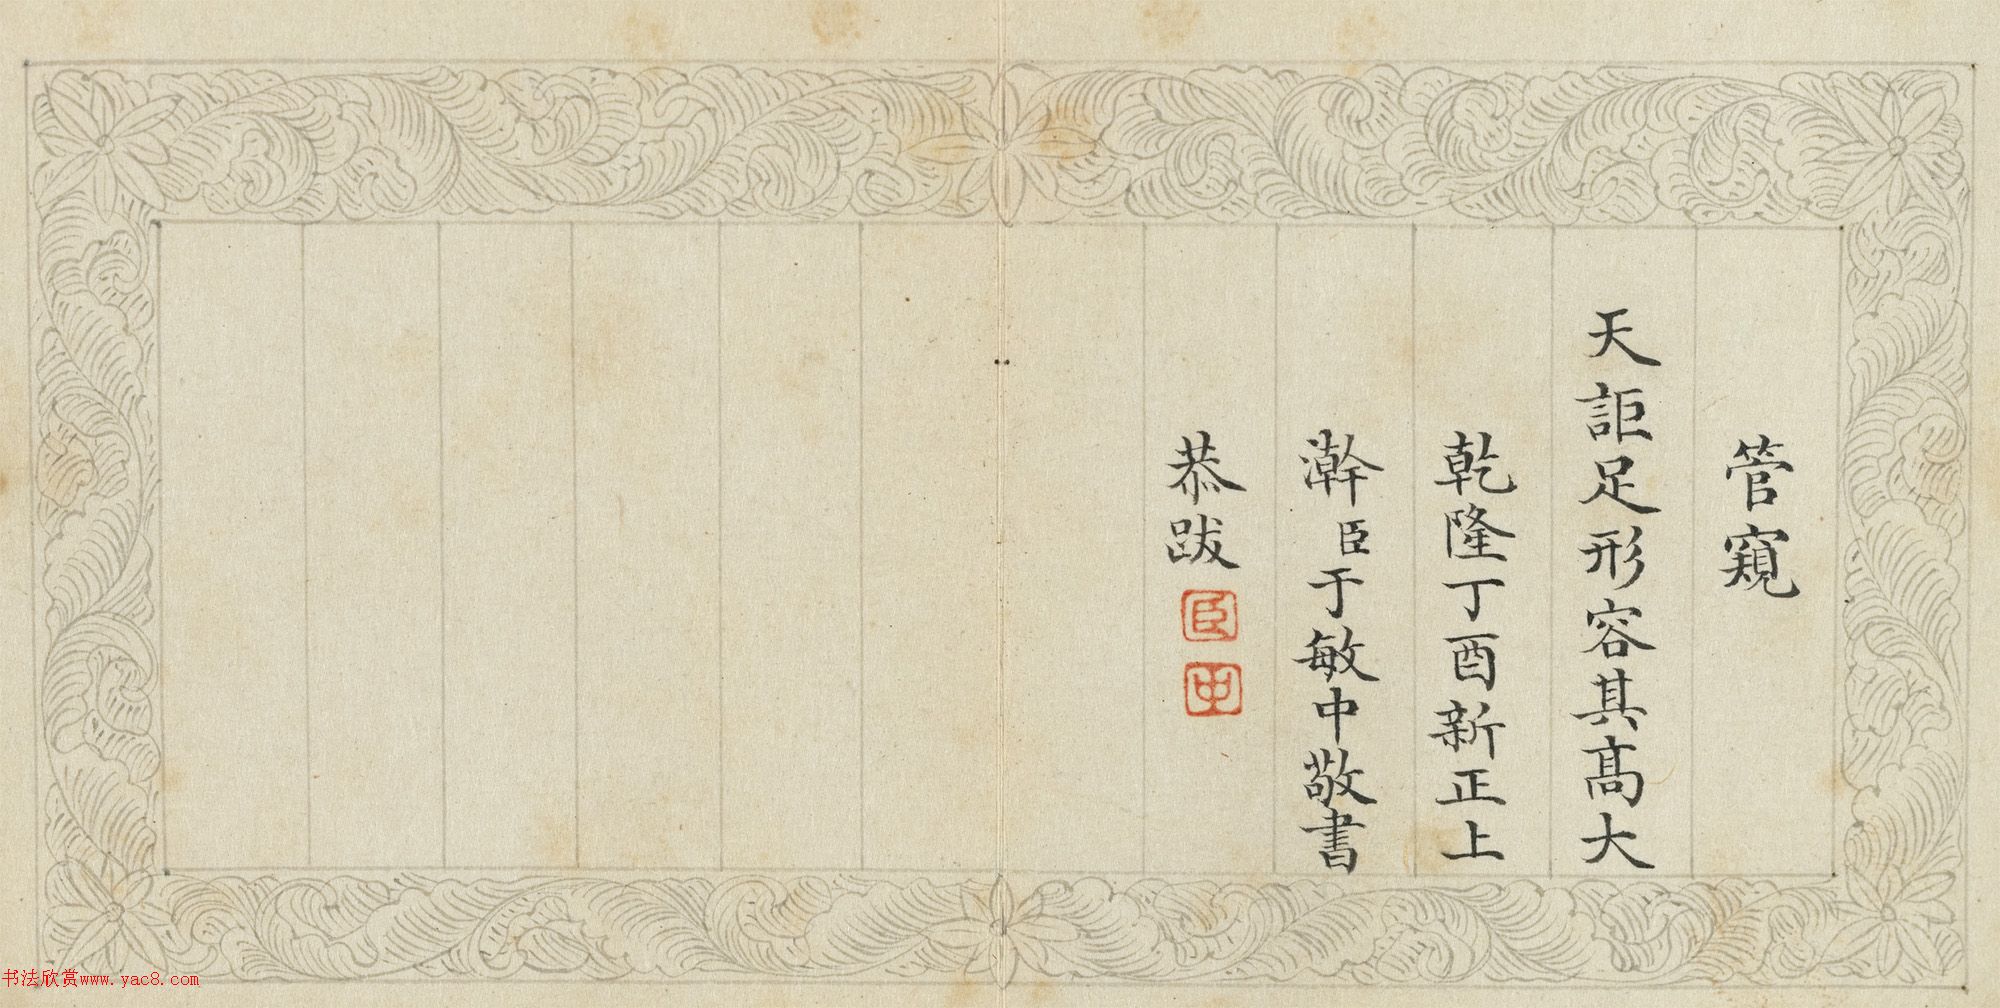 管窺
天詎足形容其髙大
乾隆丁酉新正上
澣臣于敏中敬書
恭跋
臣
中
书法欣赏www.yac8.com